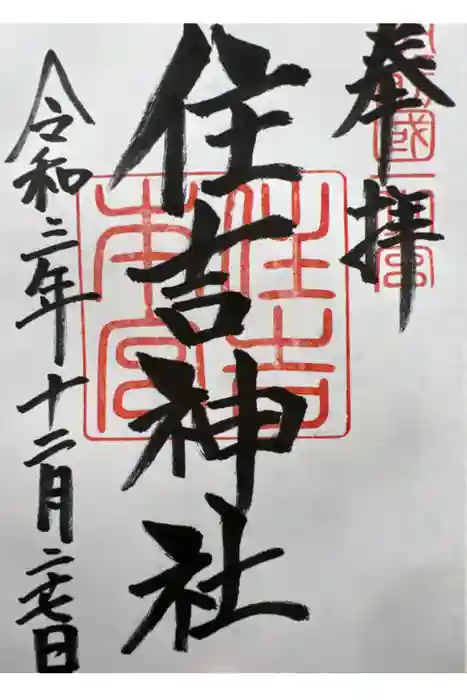 奉拝
筑前國一宮
住吉神社
住吉本宮
令和三年十二月二七日